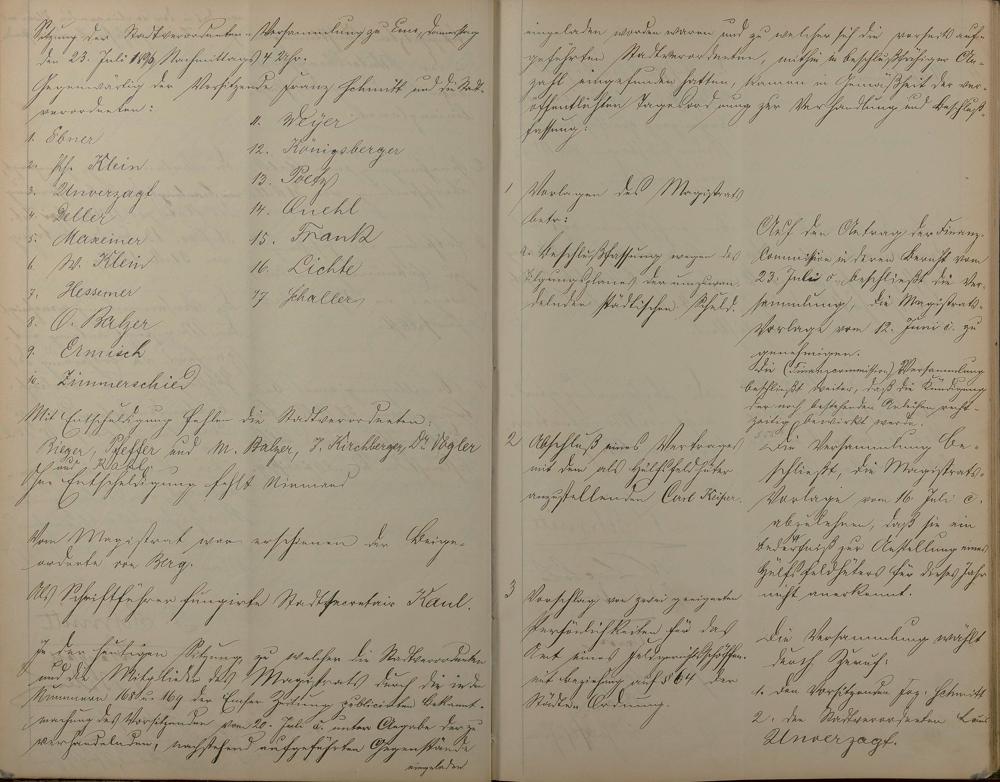 Sitzung der Stadtverordneten-Versammlung zu Ems, Donnerstag
den 23. Juli 1896 Nachmittags 4 Uhr.
Gegenwärtig der Vorsitzende Franz Schmitt und die Stadt-
verordneten:
1. Ebner
2. Ph. Klein
3. Unverzagt
4. Deller
5. Maxeiner
6. W. Klein
7. Hessemer
8. O. Balzer
9. Ermisch
10. Zimmerschied
11. Weyer
12. Königsberger
13. Poetz
14. Quehl
15. Frank
16. Lichte
17. Schaller
Mit Entschuldigung fehlen die Stadtverordneten:
Rieger, Pfeffer und M. Balzer, J. Kirchberger, Dr. Vogler
und
Ohne Entschuldigung fehlt Niemand
Vom Magistrat war erschienen der Beige-
ordnete von Berg.
Als Schriftführer fungirte Stadtsecretair Kaul.
In der heutigen Sitzung, zu welcher die Stadtverordneten
und die Mitglieder des Magistrats durch die in den
Nummern 168 u. 169 der Emser Zeitung publicirten Bekannt-
machung des Vorsitzenden vom 20. Juli c. unter Angabe der zu
verhandelnden, nachstehend aufgeführten Gegenstände
eingeladen
eingeladen worden waren und zu welcher sich die vorseits auf-
geführten Stadtverordneten, mithin in beschlußfähiger An-
zahl eingefunden hatten, kamen in Gemäßheit der ver-
öffentlichten Tagesordnung zur Verhandlung und Beschluß-
fassung:
1 Vorlagen des Magistrats
betr:
a. Beschlußfassung wegen des
Tilgungsplanes der umzuwan-
delnden städtischen Schuld.
Auf den Antrag der Finanz-
Commission in deren Bericht vom
23. Juli c. beschließt die Ver-
sammlung, die Magistrats-
Vorlage vom 12. Juni c. zu
genehmigen.
Die (Finanzcommission) Versammlung
beschließt weiter, daß die Kündigung
der noch bestehenden Anleihen recht-
zeitig bewirkt werde.
2 Abschluß eines Vertrages
mit dem als Hülfsfeldhüter
anzustellenden Carl
Die Versammlung be-
schließt, die Magistrats-
Vorlage vom 16. Juli c.
abzulehnen, daß sie ein
Bedürfniß zur Anstellung eines
Hülfsfeldhüters für dieses Jahr
nicht anerkennt.
3 Vorschlag von zwei geeigneten
Persönlichkeiten für das
Amt eines Feldgerichtsschöffen.
mit Beziehung auf § 64 der
Städte Ordnung.
Die Versammlung wählt
durch Zuruf:
1. den Vorsitzenden Frz. Schmitt
2. den Stadtverordneten
Unverzagt.